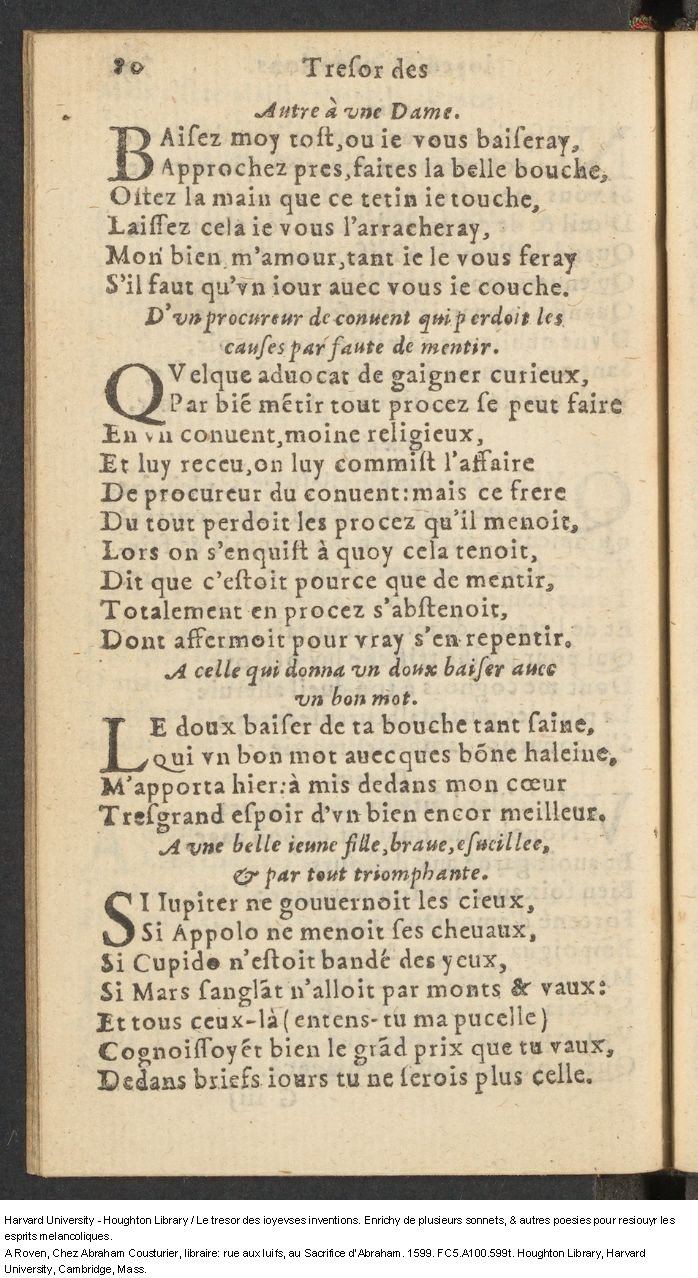 80 Treſor des
Autre à vne Dame.
BAiſez moy toſt,ou ie vous baiſeray,
Approchez pres,faites la belle bouche,
Oſtez la main que ce tetin ie touche,
Laiſſez cela ie vous l'arracheray,
Mon bien m'amour,tant ie le vous feray
S'il faut qu'vn iour auec vous ie couche.
D'vn procureur de conuent qui perdoit les
cauſes par faute de mentir.
QVelque aduocat de gaigner curieux,
Par biē mētir tout procez ſe peut faire
En vn conuent,moine religieux,
Et luy receu,on luy commiſt l'affaire
De procureur du conuent:mais ce frere
Du tout perdoit les procez qu'il menoit,
Lors on s'enquiſt à quoy cela tenoit,
Dit que c'eſtoit pource que de mentir,
Totalement en procez s'abſtenoit,
Dont affermoit pour vray s'en repentir.
A celle qui donna vn doux baiſer auec
vn bon mot.
LE doux baiſer de ta bouche tant ſaine,
Qui vn bon mot auecques bōne haleine,
M'apporta hier:à mis dedans mon cœur
Treſgrand eſpoir d'vn bien encor meilleur.
A vne belle ieune fille,braue,eſueillee,
& par tout triomphante.
SI Iupiter ne gouuernoit les cieux,
Si Appolo ne menoit ſes cheuaux,
Si Cupido n'eſtoit bandé des yeux,
Si Mars ſanglāt n'alloit par monts & vaux:
Et tous ceux-là (entens-tu ma pucelle)
Cognoiſſoyēt bien le grād prix que tu vaux,
Dedans briefs iours tu ne ſerois plus celle.
Harvard University - Houghton Library / Le tresor des ioyevses inventions. Enrichy de plusieurs sonnets, & autres poesies pour resiouyr les
esprits melancoliques.
A Roven, Chez Abraham Cousturier, libraire: rue aux Iuifs, au Sacrifice d'Abraham. 1599. FC5.A100.599t. Houghton Library, Harvard
University, Cambridge, Mass.